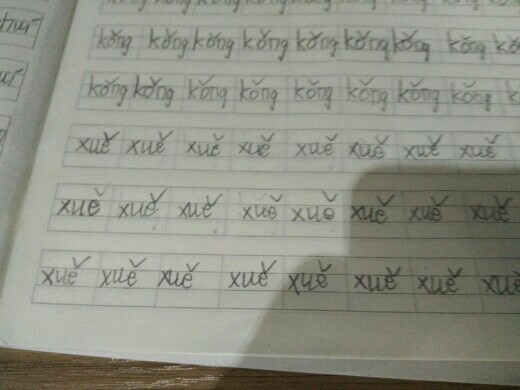 kǒng kǒng kǒng kǒng kǒng kǒng kǒng kǒng
kǒng kǒng kǒng kǒng kǒng kǒng kǒng kǒng
xuě xuě xuě xuě xuě xuě xuě xuě
xuě xuě xuě xuě xuě xuě xuě xuě
xuě xuě xuě xuě xuě xuě xuě